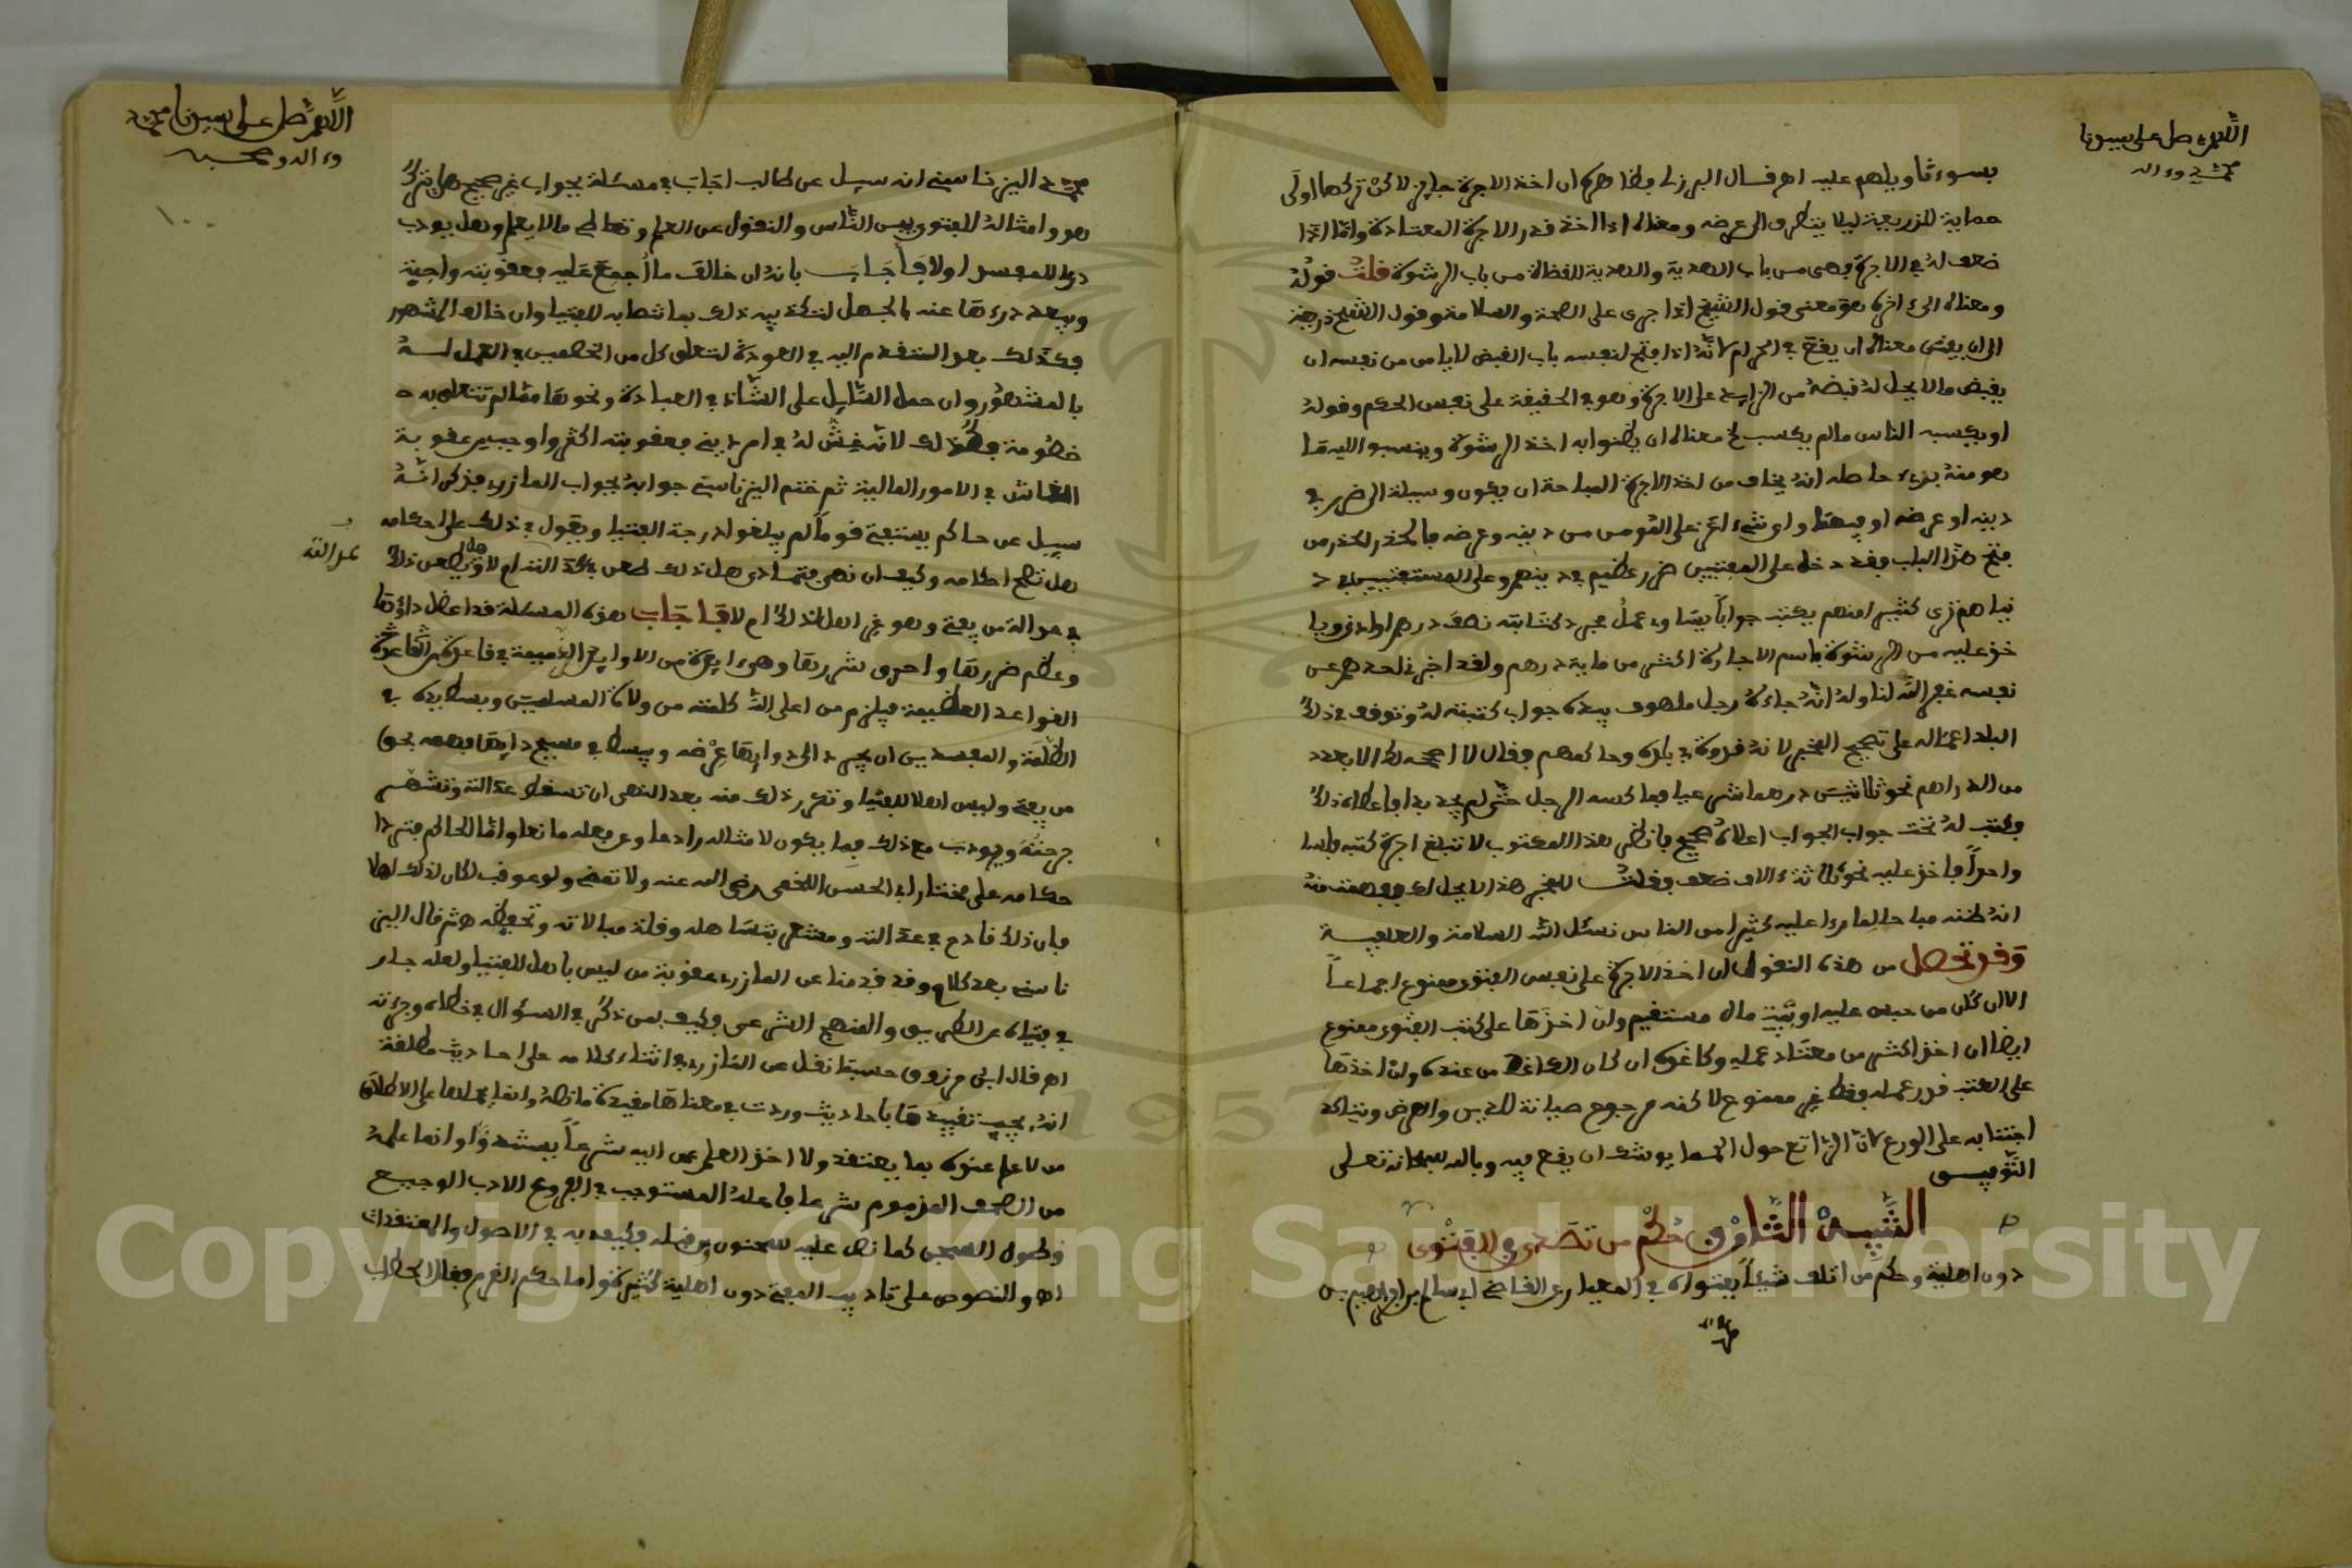 اللهم صل على سيدنا
محمد وءاله
بسوء تاويلهم عليه اهـ قال البرزلي وظاهره ان اخذ الاجرة جايز لاكن تركها اولى
حماية للذريعة ليلا يتطرق الى عرضه ومعناه اذا اخذ قدر الاجرة المعتادة واما اذا
ضعف له في الاجرة فهي من باب الهدية والهدية للقضاة من باب الرشوة قلت قوله
ومعناه الى ءاخره هو معنى قول الشيخ اذا جرى على الصحة والسلامة وقول الشيخ ذريعة
الى ان يفضي معناه ان يقع في الحرام لانه اذا فتح لنفسه باب القبض لا يامن من نفسه ان
يقبض ما لا يحل له قبضه من الزايد على الاجرة وهو في الحقيقة على نفس الحكم وقوله
او يكسبه الناس ما لم يكسب لخ معناه ان يظنوا به اخذ الرشوة وينسبوا اليه ما
هو منه بريء حاصله انه يخاف من اخذ الاجرة المباحة ان يكون وسيلة الى ضرر في
دينه او عرضه او فيهما واي شيء اعز على المومن من دينه وعرضه فالحذر الحذر من
فتح هذا الباب فقد دخل على المفتيين ضرر عظيم في دينهم وعلى المستفتيين في د
نياهم نرى كثيرا منهم يكتب جوابا يساوي عمل مجرد كتابته نصف درهم او اد فويا
خذ عليه من الرشوة باسم الاجارة اكثر من ماية درهم ولقد اخبرني احدهم عن
نفسه غفر الله لنا وله انه جاءه رجل ملهوف بيده جواب كتبته له وتوقف في ذلك
البلد اعماله على تصحيح المخبر لانه قدوة في بلده وحاكمهم فقال لا اصححه لك الا بعدد
من الدراهم نحو ثلاثين درهما شرعيا فما كسه الرجل حتى لم يجد بدا فاعطاه ذلك
وكتب له تحت جواب الجواب اعلاه صحيح فانظر هذا المكتوب لا تبلغ اجرة كتبه فلسا
واحدا فاخذ عليه نحو ثلاثة ءالاف ضعف فقلت للمخبر هذا لا يحل لك ففهمت منه
انه ظنه مباحا لما رءا عليه كثيرا من الناس نسئل الله السلامة والعافية
وقد تحصل من هذه النقول ان اخذ الاجرة على نفس الفتوى ممنوع اجماعا
الا ان كان من حبس عليه او بيت مال مستقيم وان اخذها على كتب الفتوى ممنوع
ايضا ان اخذ اكثر من معتاد عمله وكاغده ان كان الكاغد من عنده وان اخذها
على الكتب قدر عمله فقط غير ممنوع لاكنه مرجوح صيانة للدين والعرض ويتاكد
اجتنابه على الورع لان الراتع حول الحما يوشك ان يقع فيه وبالله سبحانه تعلى
التوفيق
التنبيه الثاني في حكم من تصدى للفتوى
دون اهلية وحكم من اتلف شيئا بفتواه في المعيار عن القاضي ابي سالم ابراهيم بن
محمد
اللهم صل على سيدنا محمد
وءاله وصحبه
محمد اليزناسني انه سيل عن طالب اجاب في مسئلة بجواب غير صحيح هل يترك
هو وامثاله للفتوى بين الناس والنقول عن العلم وتعاطي ما لا يعلم وهل يودب
درءا للمفسد اولا فاجاب بانه ان خالف ما اجمع عليه فعقوبته واجبة
ويبعد درءها عنه بالجهل لتكذيبه ذلك بما انتصابه للفتيا وان خالف المشهور
فكذلك بعد التقدم اليه في العودة لتعلق كل من الخصمين في العمل له
بالمشهور وان حمل السايل على الشاذ في العبادة ونحوها مما لم تتعلق به
خصومة فكذلك لانه غش له في امر دينه فعقوبته اكثر واوجب من عقوبة
الغاش في الامور المالية ثم ختم اليزناسني جوابه بجواب المازري فذكر انه
سيل عن حاكم يستفتي قوما لم يبلغوا درجة الفتيا ويقول في ذلك على احكامه
هل تصح احكامه وكيف ان نهي فتمادى هل ذلك طعن في عدالته ام لا وهل يطعن ذلك
عدالته
في عدالة من يفتي وهو غير اهل لذلك ام لا فاجاب هذه المسئلة قد اعضل داؤها
وعظم ضررها واحرق شررها وهي ابدة من الاوابد الذميمة في قاعدة من قاعدة
القواعد العظيمة فيلزم من اعلى الله كلمته من ولاة المسلمين وبسط يده في
الظلمة والمفسدين ان يجرد الى دوايها عزمه ويبسط في فسيح دايها فهمه نحو
من يفتي وليس اهلا للفتيا وتكرر ذلك منه بعد النهي ان تسقط عدالته وتشهر
جرحته ويودب مع ذلك بما يكون لامثاله رادعا وعن فعله مانعا واما الحاكم فترد ا
حكامه على مختار ابي الحسن اللخمي رضي الله عنه ولا تمضي ولو وافق لكان لذلك اهلا
فان ذلك قادح في عدالته ومشعر بتساهله وقلة مبالاته وتحفظه ثم قال اليز
ناسني بعد كلام وقد قدمنا عن المازري عقوبة من ليس باهل للفتيا ولعله جار
في فتياه عن الطريق والمنهج الشرعي وكيف بمن ذكر في السؤال في خطاه وجرءته
اهـ قال ابن مرزوق حسبما نقل عن المازري في اثناء كلامه على احاديث مطلقة
انه يجب تقييدها باحاديث وردت في معناها مقيدة ما نصه وانما يحملها على الاطلاق
من لا علم عنده بما يعتقد ولا اخذ العلم عمن اليه شرعا يستند او انما علمه
من الصحف المذموم شرعا فاعله المستوجب في الفروع الادب الوجيع
وطول السجن كما نص عليه سحنون وغيره فكيف به في الاصول والمعتقدات
اهـ والنصوص على تاديب المفتي دون اهلية كثيرة واما حكم الغرم فقال الحطاب